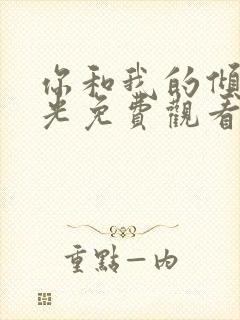 你和我的傾
光免費觀看
重點一內